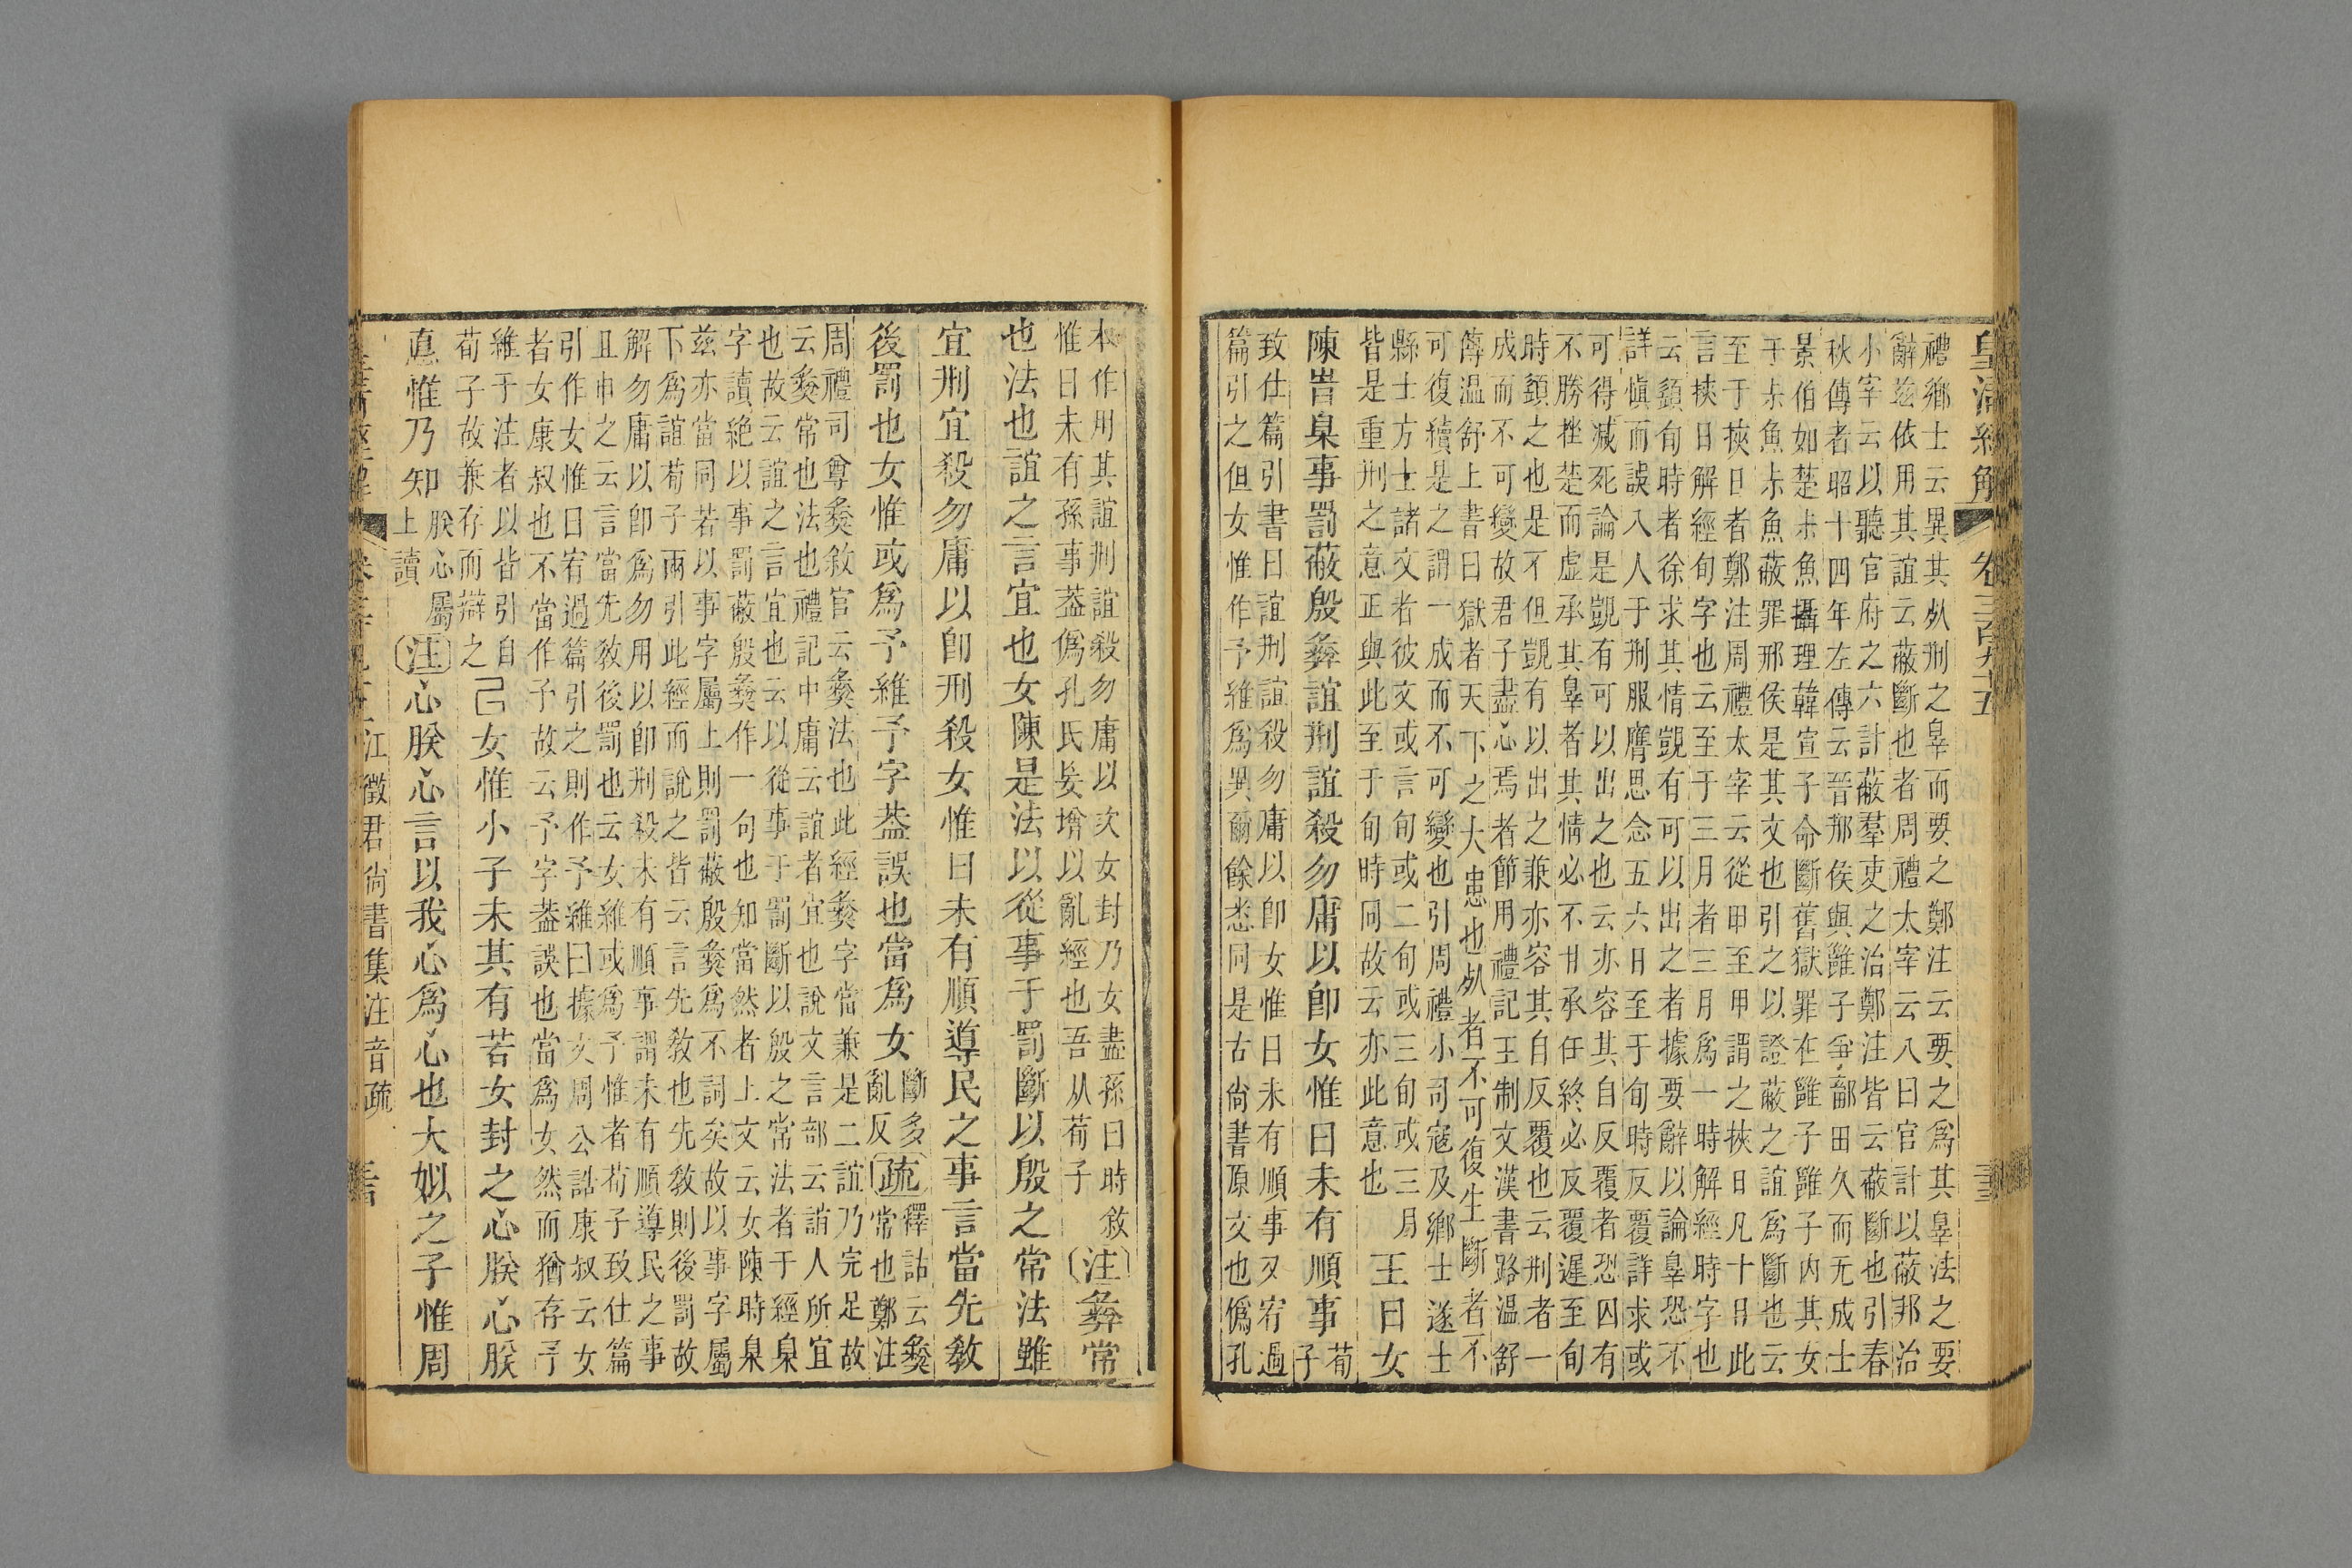 皇清經解 卷三百九十五
禮鄉士云異其𣦸刑之辠而要之鄭注云要之爲其辠法之要
辭玆依用其誼云蔽斷也者周禮太宰云八曰官計以蔽邦治
小宰云以聽官府之六計蔽羣吏之治鄭注皆云蔽斷也引春
秋傳者昭十四年左傳云晉邢侯與雝子爭鄐田久而无成士
景伯如楚尗魚攝理韓宣子命斷舊獄罪在雝子雝子內其女
于尗魚尗魚蔽罪邢侯是其文也引之以證蔽之誼爲斷也云
至于挾日者鄭注周禮太宰云從甲至甲謂之挾日凡十日此
言挾日解經旬字也云至于三月者三月爲一時解經時字也
云顀旬時者徐求其情覬有可以出之者據要辭以論辠恐不
詳愼而誤入人于刑服膺思念五六日至于旬時反覆詳求或
可得減死論是覬有可以出之也云亦容其自反覆者恐囚有
不勝挫楚而虛承其辠者其情必不甘承任終必反覆遲至旬
時顀之也是不但覬有以出之兼亦容其自反覆也云刑者一
成而不可變故君子盡心焉者節用禮記王制文漢書路溫舒
傳溫舒上書曰獄者天下之大忠也𣦸者不可復生斷者不
可復續是之謂一成而不可變也引周禮小司寇及鄉士遂士
縣士方士諸文者彼文或言旬或二旬或三旬或三月
皆是重刑之意正與此至于旬時同故云亦此意也
王曰女
陳旹臬事罰蔽殷彝誼刑誼殺勿庸以卽女惟曰未有順事
荀子
致仕篇引書曰誼刑誼殺勿庸以卽女惟曰未有順事又宥過
篇引之但女惟作予維爲異爾餘悉同是古尙書原文也僞孔
本作用其誼刑誼殺勿庸以次女封乃女盡孫曰時敘
惟曰未有孫事葢僞孔氏妄增以亂經也吾从荀子
注彝常
也法也誼之言宜也女陳是法以從事于罰斷以殷之常法雖
宜刑宜殺勿庸以卽刑殺女惟曰未有順導民之事言當先敎
後罰也女惟或爲予維予字葢誤也當爲女
斷多
亂反
疏
釋詁云彝
常也鄭注
周禮司尊彝敘官云彝法也此經彝字當兼是二誼乃完足故
云彝常也法也禮記中庸云誼者宜也說文言部云誼人所宜
也故云誼之言宜也云以從事于罰斷以殷之常法者于經臬
字讀絕以事罰蔽殷彝作一句也知當然者上文云女陳時臬
玆亦當同若以事字屬上則罰蔽殷彝爲不詞矣故以事字屬
下爲誼荀子兩引此經而說之皆云言先敎也先敎則後罰故
解勿庸以卽爲勿用以卽刑殺未有順事謂未有順導民之事
且申之云言當先敎後罰也云女維或爲予惟者荀子致仕篇
引作女惟曰宥過篇引之則作予維曰據文周公誥康叔云女
者女康叔也不當作予故云予字葢誤也當爲女然而猶存予
維于注者以皆引自
荀子故兼存而辯之
己女惟小子未其有若女封之心朕心朕
悳惟乃知
朕心屬
上讀
注
心朕心言以我心爲心也大姒之子惟周
皇清經解
江徵君尙書集注音疏